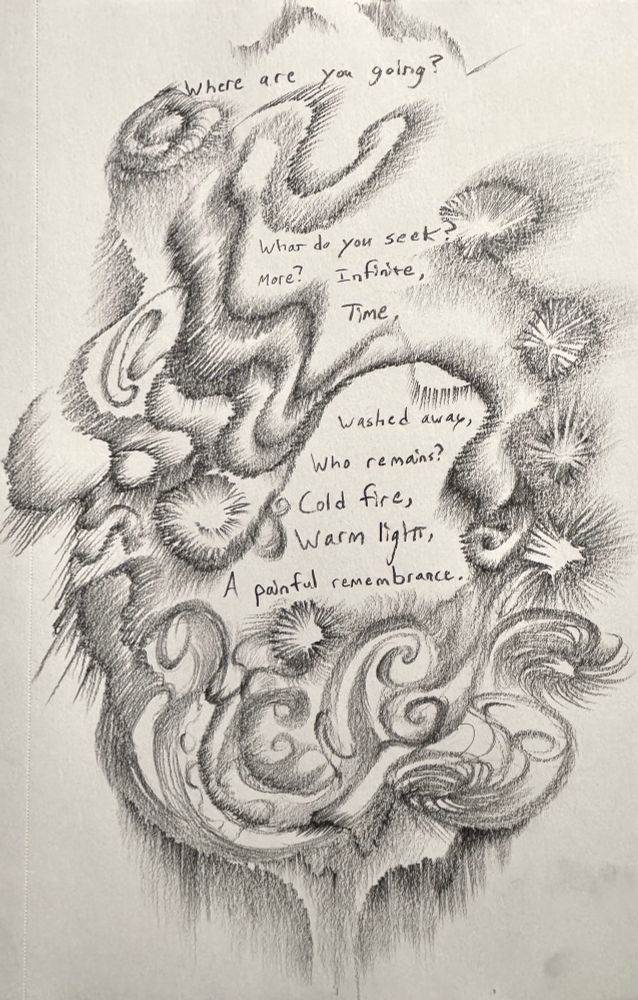 Where are you going?
What do you seek?
More? Infinite,
Time,
washed away,
Who remains?
Cold fire,
Warm light,
A painful remembrance.